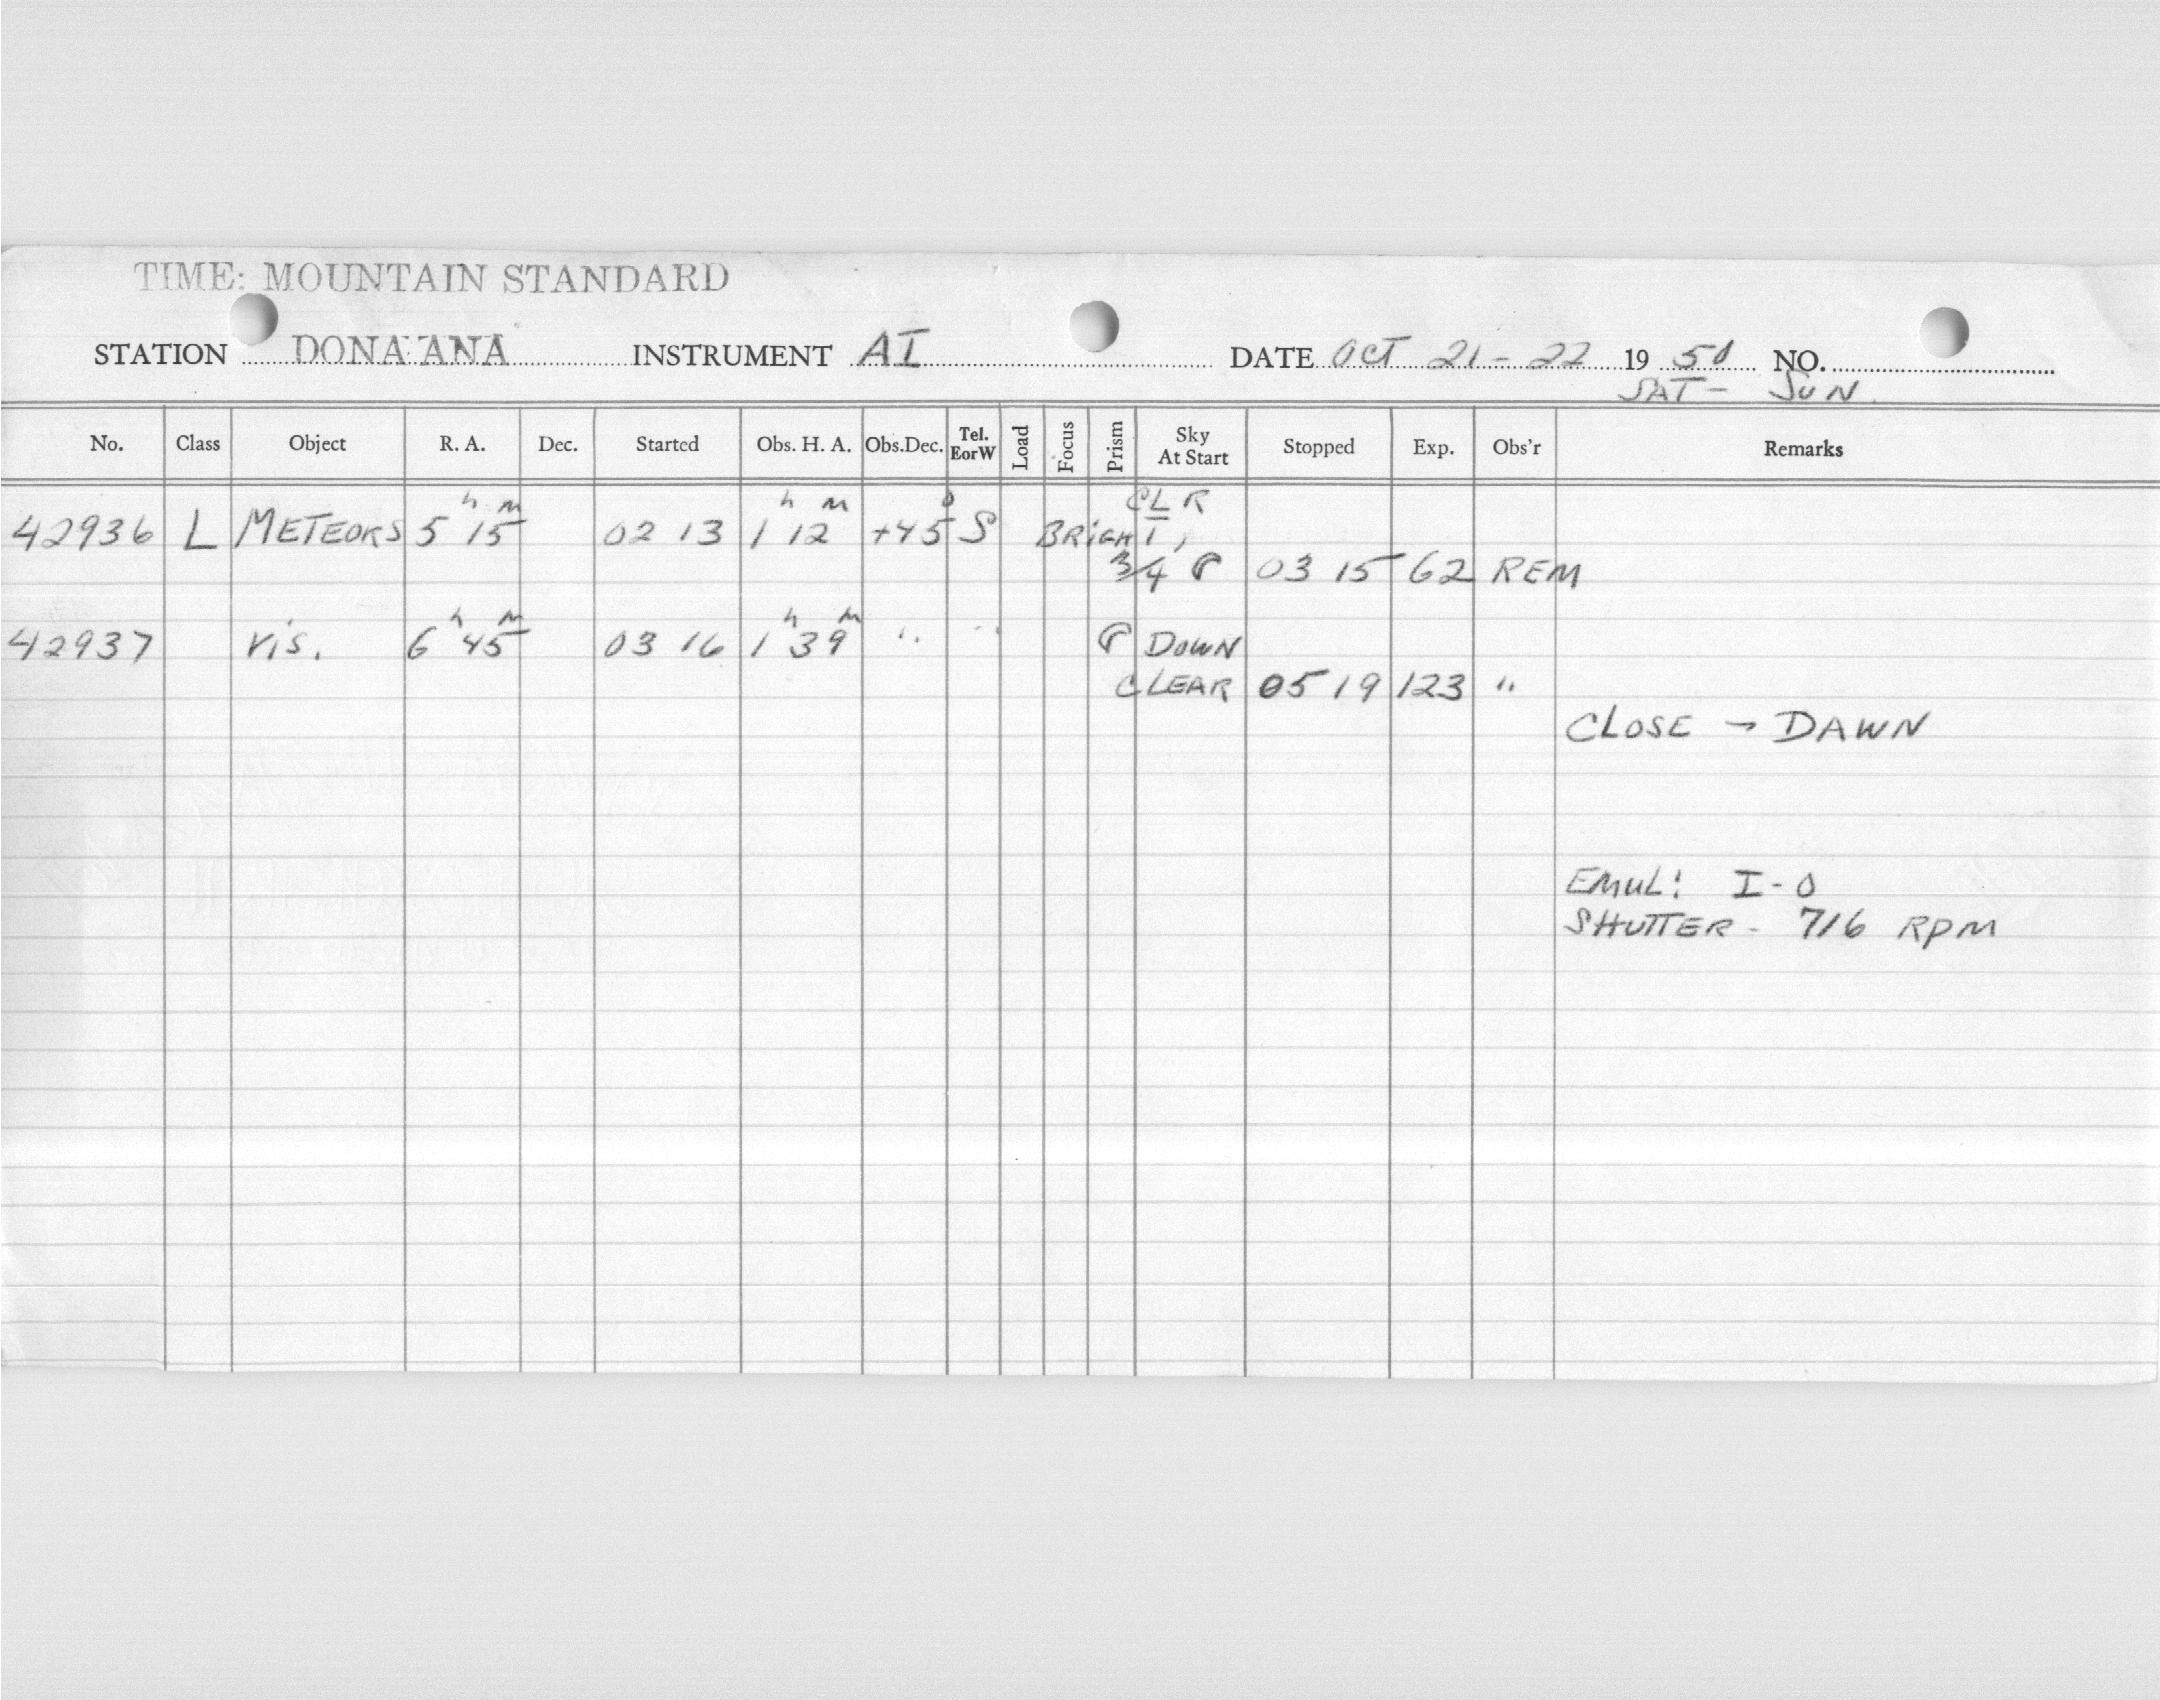 TIME: MOUNTAIN STANDARD
STATION DONA ANA INSTRUMENT AI DATE OCT 21-22 19 50 NO.
SAT - SUN.
No. Class Object R. A. Dec. Started Obs. H. A. Obs.Dec. Tel. EorW Load Focus Prism Sky At Start Stopped Exp. Obs'r Remarks
CLR
42936 L METEORS 5h 15m 02 13 1h 12m +45° S BRIGHT,
3/4 03 15 62 REM
42937 Vis. 6h 45m 03 16 1h 39m " " DOWN
CLEAR 05 19 123 "
CLOSE - DAWN
EMUL: I-O
SHUTTER - 716 RPM